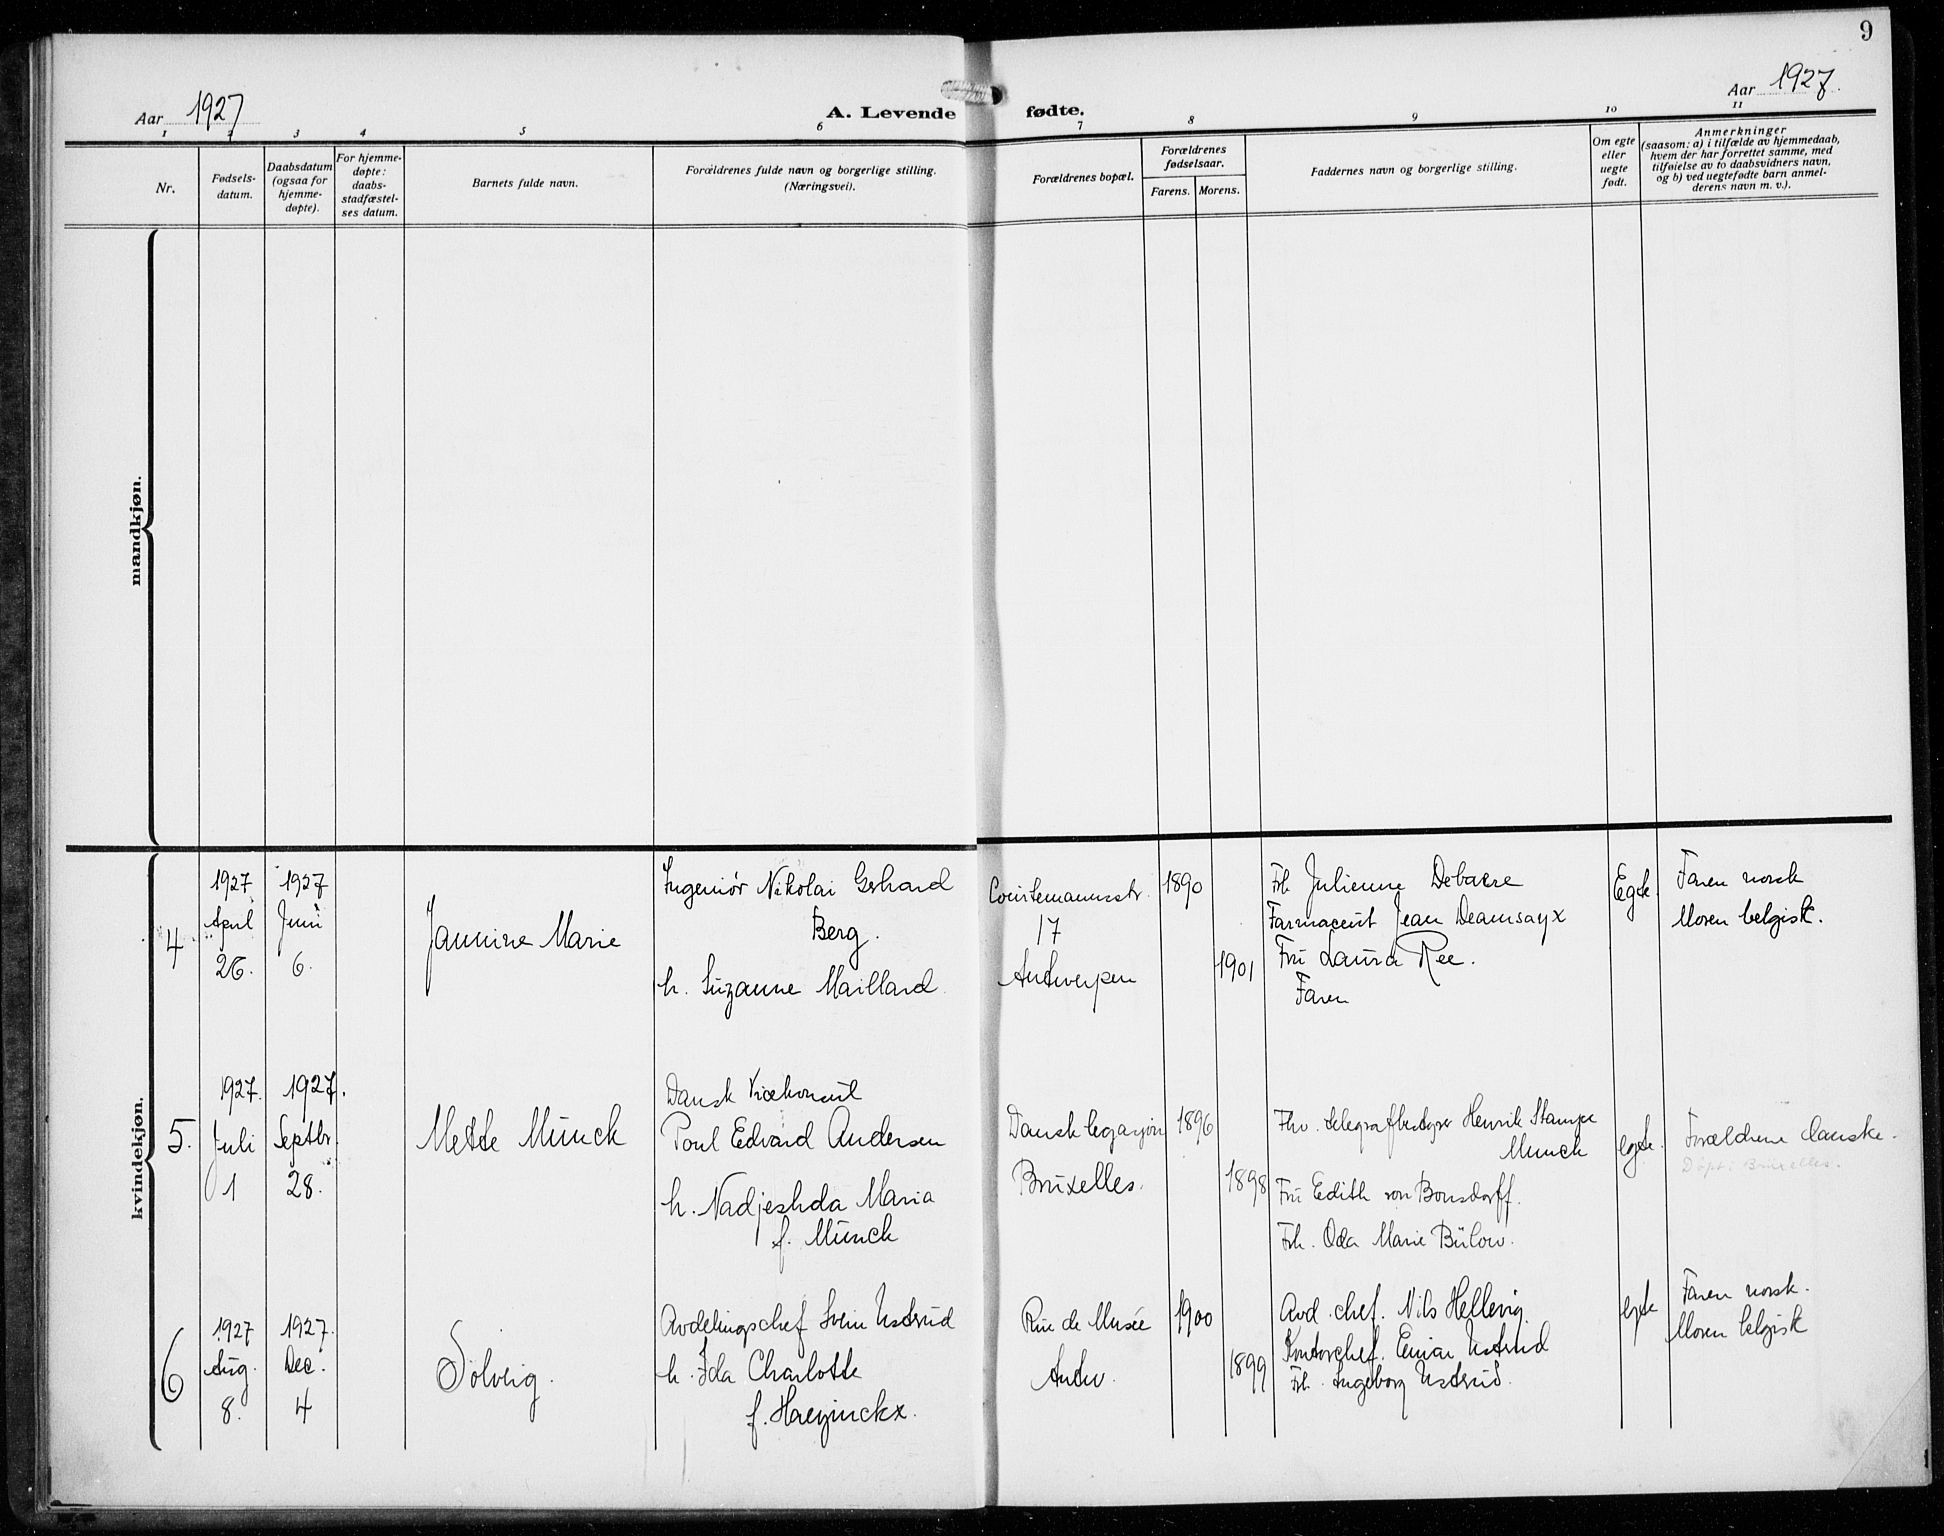 9
Aar 1927
A. Levende fødte.
Aar 1927.
1 2 3 4 5 6 7 8 9 10 11
Nr.
Fødsels-
datum.
Daabsdatum
(ogsaa for
hjemme-
døpte).
For hjemme-
døpte:
daabs-
stadfæstel-
ses datum.
Barnets fulde navn.
Forældrenes fulde navn og borgerlige stilling.
(Næringsvei).
Forældrenes bopæl.
Forældrenes
fødselsaar.
Farens. Morens.
Faddernes navn og borgerlige stilling.
Om egte
eller
uegte
født.
Anmerkninger
(saasom: a) i tilfælde av hjemmedaab,
hvem der har forrettet samme, med
tilføielse av to daabsvidners navn,
og b) ved uegtefødte barn anmel-
derens navn m. v.).
mandkjøn.
kvindekjøn.
4
1927
April
26.
1927
Juni
6.
Jannine Marie
Ingeniör Nikolai Gerhard
Berg.
h. Suzanne Maillard.
17
Antwerpen
1890
1901
Frk Julienne Debaere
Farmaceut Jean Deamsayx
Fru Laura Ree.
Faren
Egte.
Faren norsk
Moren belgisk.
5.
1927.
Juli
1
1927.
Septbr.
28.
Mette Munck
Dansk Vicekonsul
Poul Edvard Andersen
h. Nadjeshda Maria
f. Munck
Dansk legasjon
Bruxelles.
1896
1898
Fhv. telegrafbestyrer Henrik Stampe
Munck
Fru Edith von Bonsdorff.
Frk. Oda Marie Bülow.
egte.
Forældrene danske.
Døpt i Bruxelles.
6
1927
Aug.
8.
1927.
Dec.
4
Solveig.
Avdelingschef Svein Ustrud
h. Ida Charlotte
f. Haeyinckx.
Rue de Musée
Antw.
1900
1899
Avd. chef. Nils Hellevig.
Kontorchef. Einar Ustrud
Frk. Ingeborg Ustrud.
egte
Faren norsk.
Moren belgisk